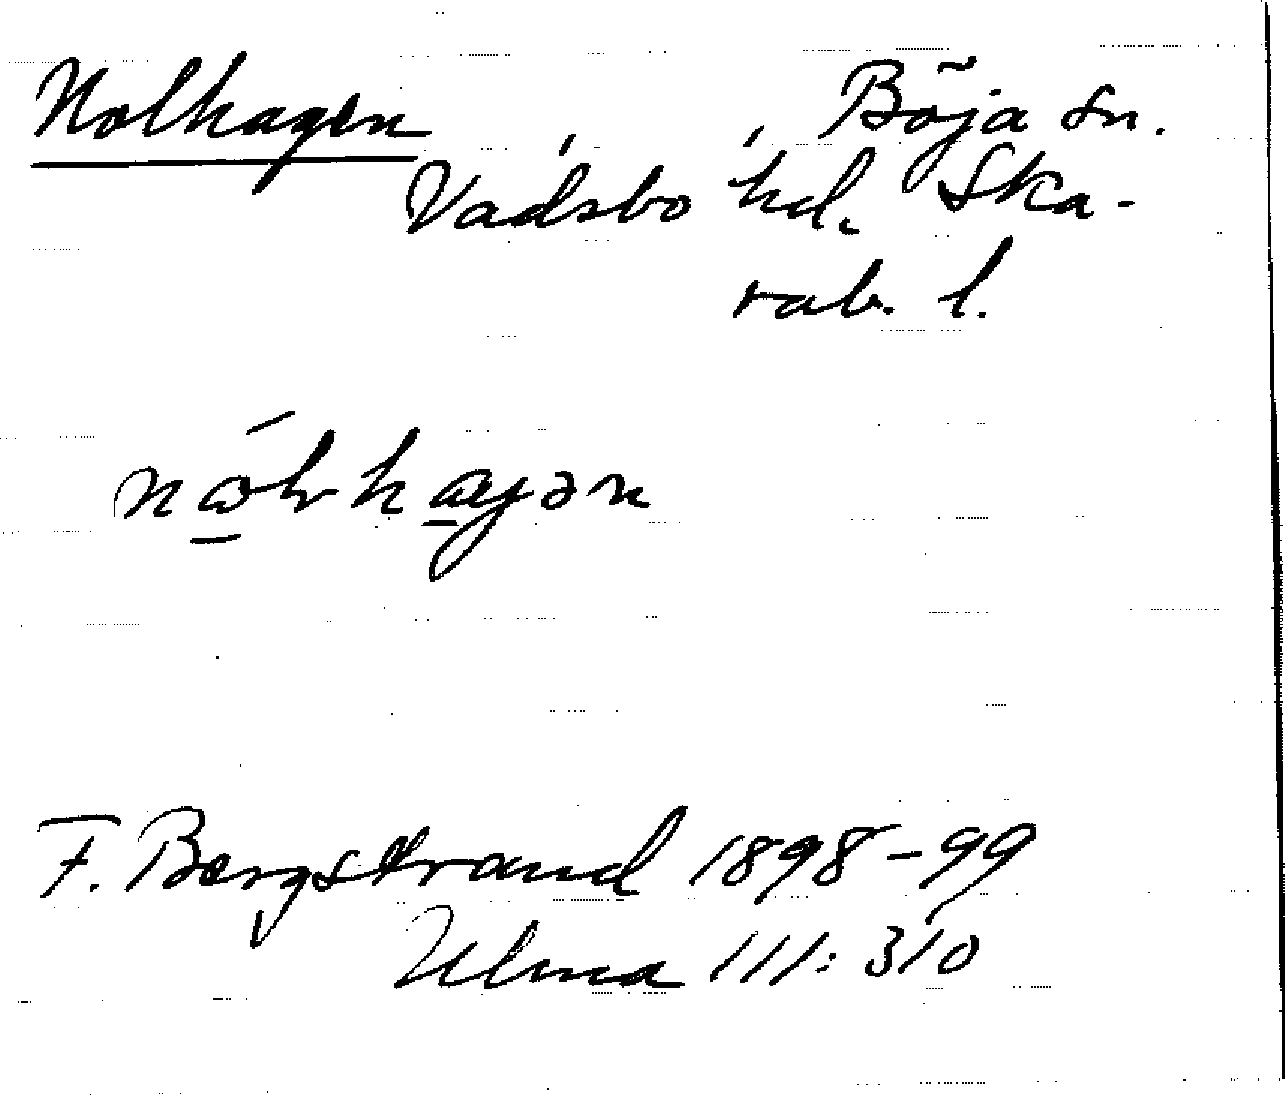 Nolhagen Böja sn.
Vadsbo hd. Ska-
rab. l.
F. Bergstrand 1898-99
Ulma 111:310